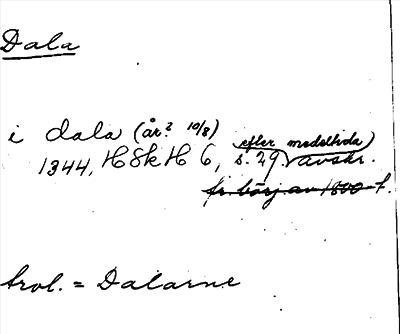 Dala
i dala (år? 10/8)
1344, HSkH 6, s. 29. efter medeltida) avskr.
fr. börj av 1800-t.
trol. = Dalarne